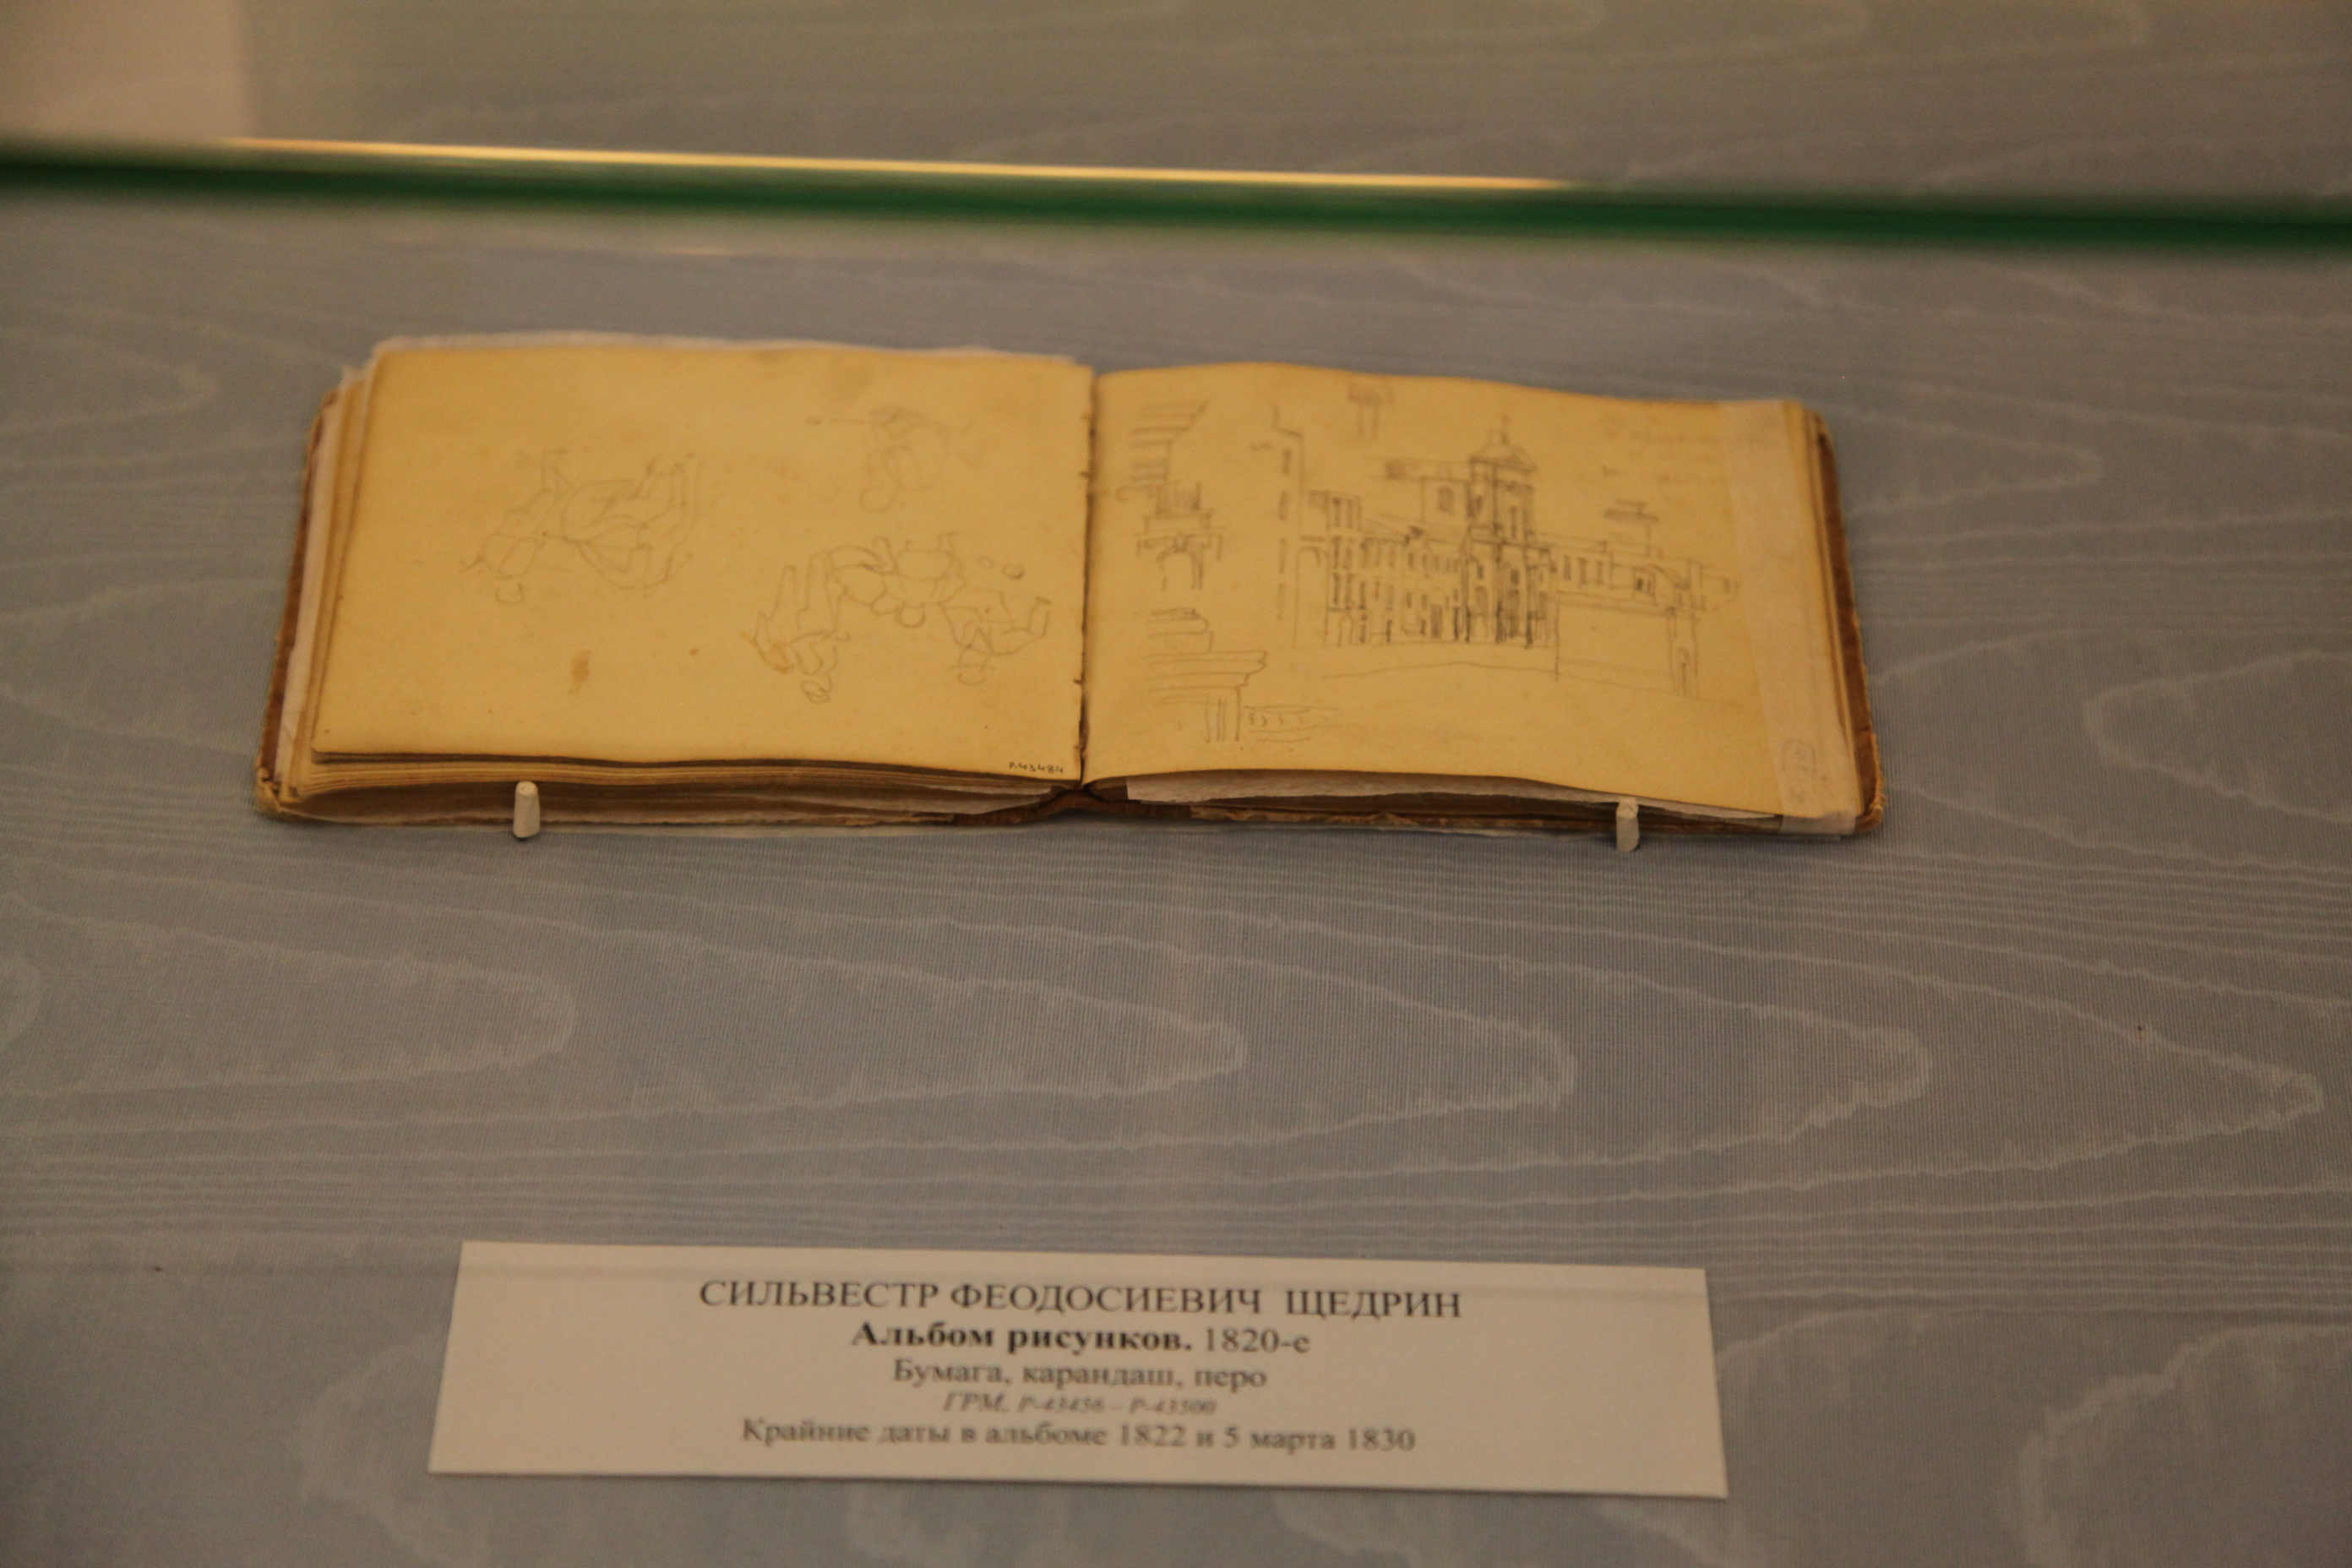 Р.43484
СИЛЬВЕСТР ФЕОДОСИЕВИЧ ЩЕДРИН
Альбом рисунков. 1820-е
Бумага, карандаш, перо
ГРМ. Р-43456 – Р-43500
Крайние даты в альбоме 1822 и 5 марта 1830